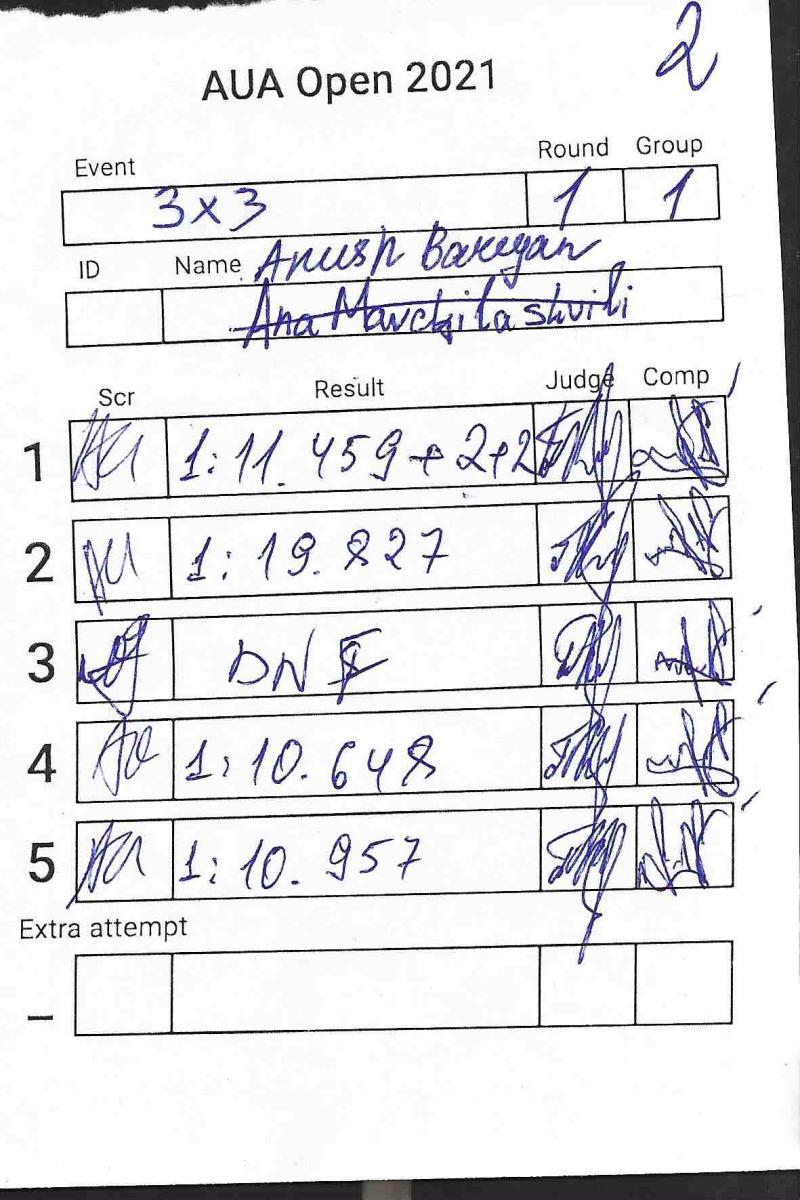 2
AUA Open 2021
Event Round Group
3x3 1 1
ID Name Anush
Ana Mavchilashvili
Scr Result Judge Comp
1 1:11.459+2+2
2 1:19.827
3 DNF
4 1:10.648
5 1:10.957
Extra attempt
_